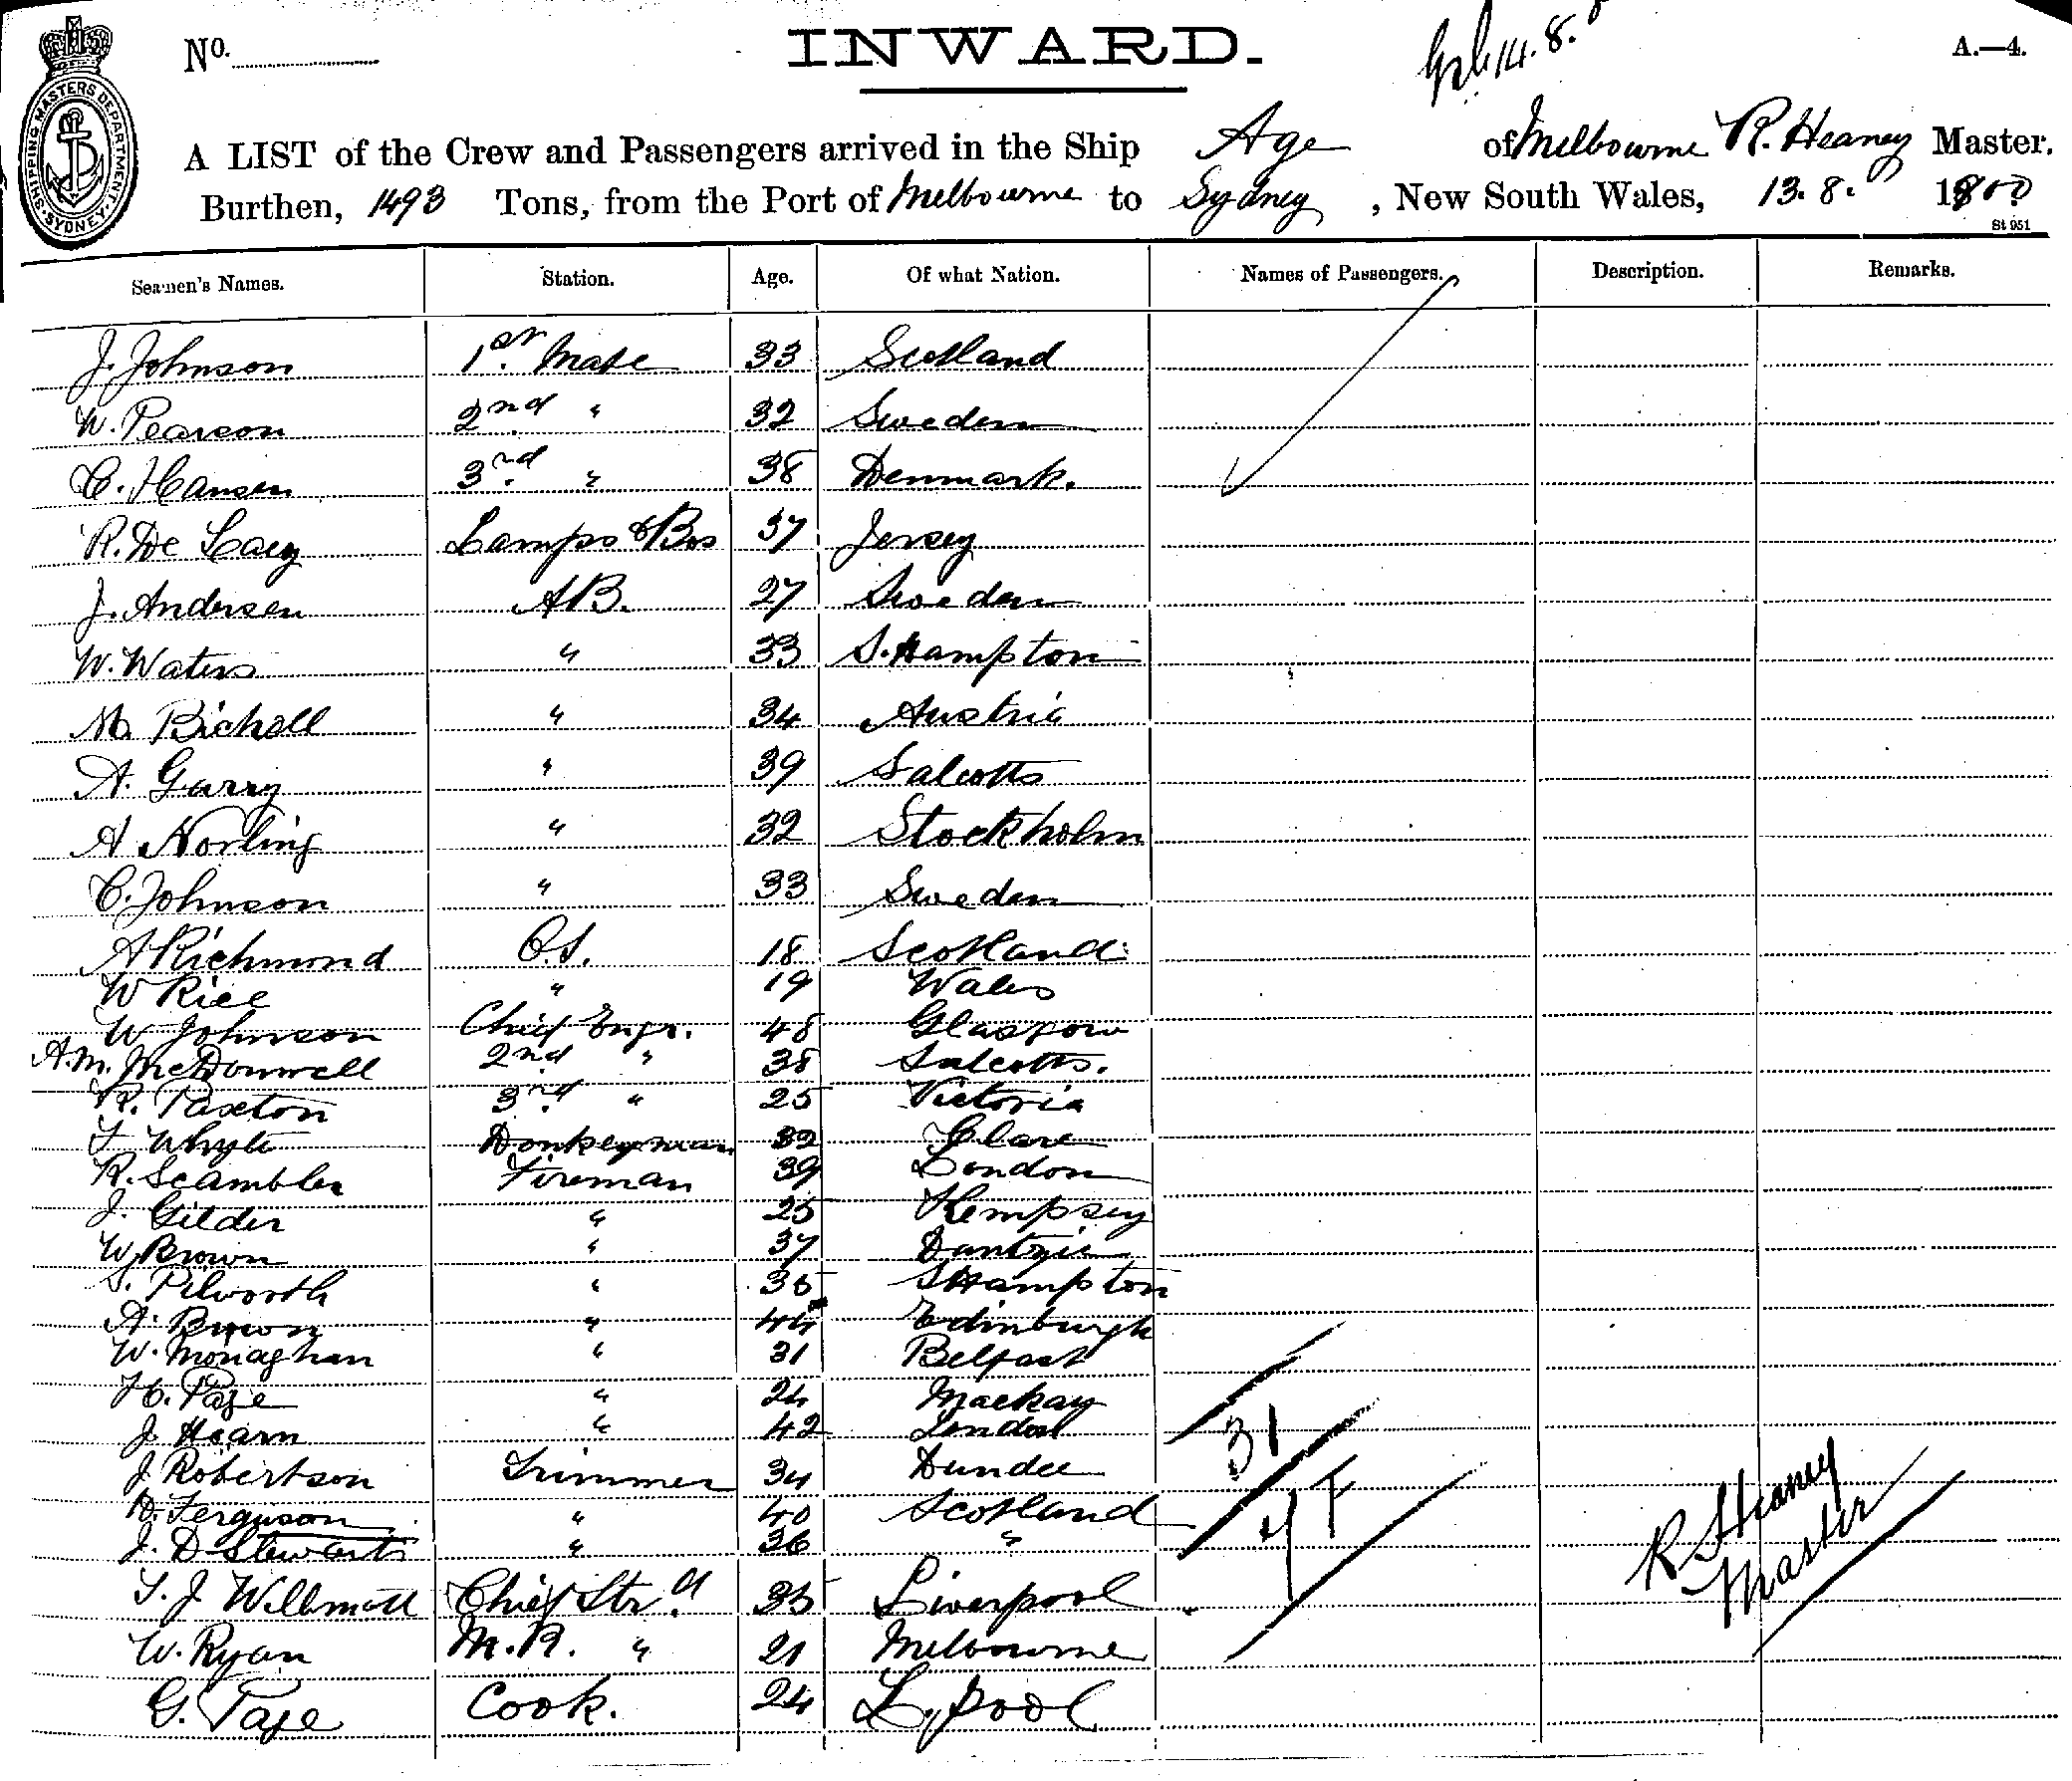 No.
INWARD.
14.8.
A.—4.
SHIPPING MASTERS DEPARTMENT. SYDNEY.
A LIST of the Crew and Passengers arrived in the Ship Age of Melbourne R. Heaney Master.
Burthen, 1493 Tons, from the Port of Melbourne to Sydney, New South Wales, 13.8. 1900
St 951
Seamen's Names. Station. Age. Of what Nation. Names of Passengers. Description. Remarks.
J. Johnson 1st. Mate 33 Scotland
W. Pearson 2nd " 32 Sweden
C. Hansen 3rd. " 38 Denmark.
R. De Lacy Lamps & Bos 37 Jersey
J. Andersen AB. 27 Sweden
W. Waters " 33 S.Hampton
M. Bicholl " 34 Austria
A. Garry " 39 Salcotts
A Norling " 32 Stockholm
C. Johnson " 33 Sweden
A Richmond O.S. 18 Scotland
W Rice " 19 Wales
W Johnson Chief Engr. 48 Glasgow
A.M. McDonnell 2nd " 38 Salcotts.
R. Paxton 3rd. " 25 Victoria
F Whyte Donkeyman 32 Clare
R. Scambler Fireman 39 London
J. Gilder " 25 Kempsey
W Brown " 37 Dantzic
S. Pilworth " 35 SHampton
A. Brown " 44 Edinburgh
W. Monaghan " 31 Belfast
H. Page " 24 Mackay
J Hearn " 42 London
31
J Robertson Trimmer 34 Dundee
D. Ferguson " 40 Scotland
J. D Stewart " 36 "
R Heaney
Master
S. J Willmott Chief Strd 35 Liverpool
W. Ryan M.R. " 21 Melbourne
G. Page Cook. 24 L.pool